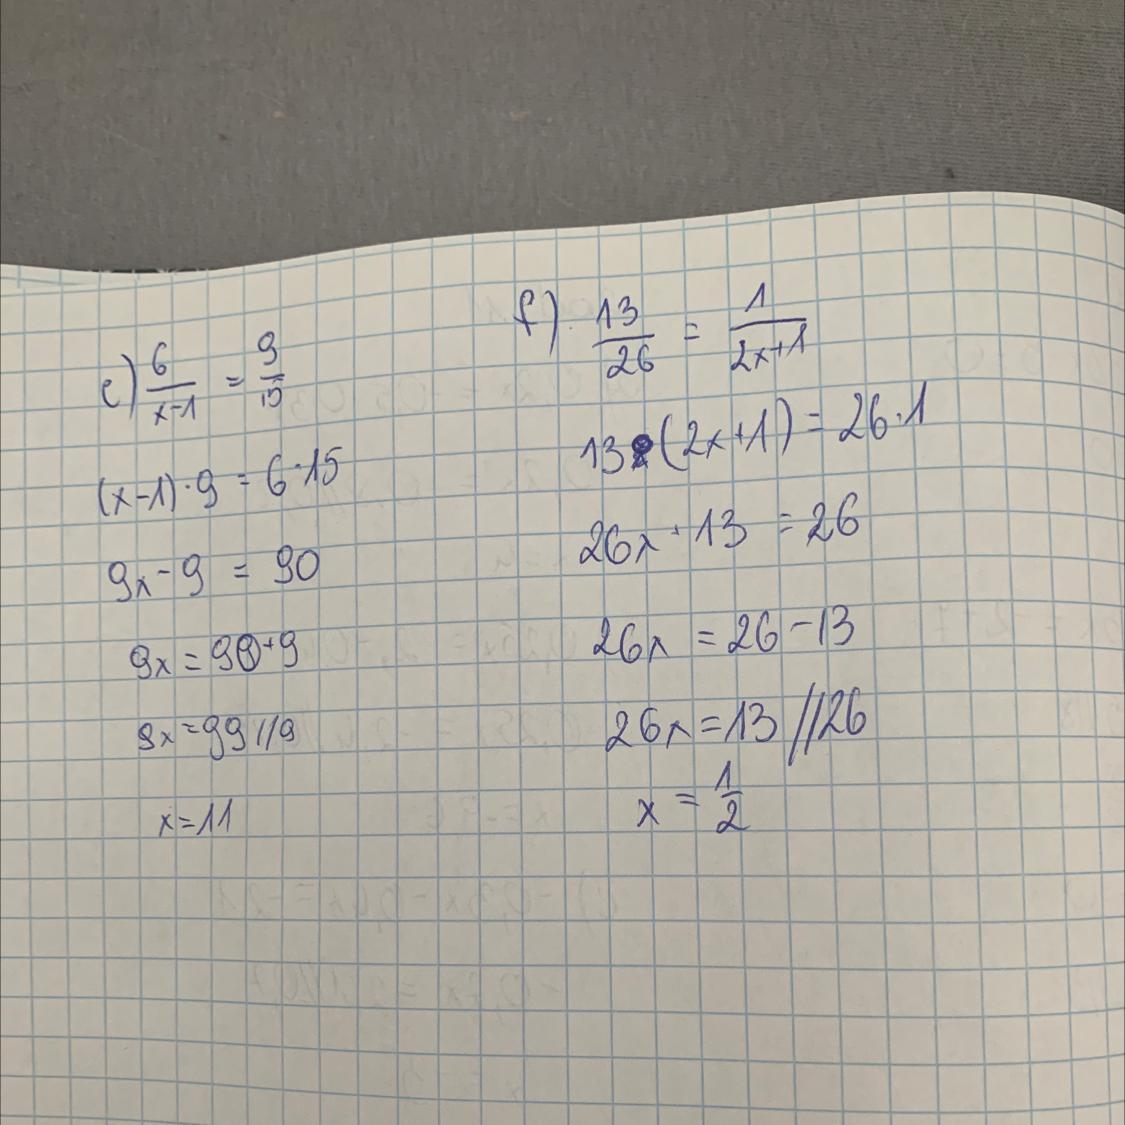 e) 6/(x-1) = 9/15
(x-1)·9 = 6·15
9x-9 = 90
9x = 90+9
9x = 99 //9
x = 11
f) 13/26 = 1/(2x+1)
13·(2x+1) = 26·1
26x+13 = 26
26x = 26-13
26x = 13 //26
x = 1/2